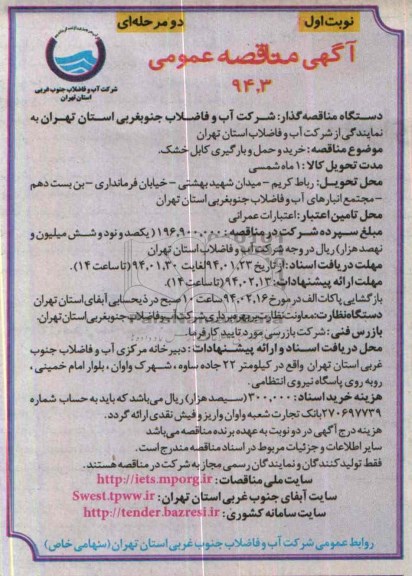 نوبت اول
دو مرحله‌ای
آگهی مناقصه عمومی
۹۴،۳
شرکت آب و فاضلاب جنوب غربی
استان تهران
دستگاه مناقصه‌گذار: شرکت آب و فاضلاب جنوبغربی استان تهران به
نمایندگی از شرکت آب و فاضلاب استان تهران
موضوع مناقصه: خرید و حمل و بارگیری کابل خشک.
مدت تحویل کالا: ۱ ماه شمسی
محل تحویل: رباط کریم - میدان شهید بهشتی - خیابان فرمانداری - بن بست دهم
- مجتمع انبارهای آب و فاضلاب جنوبغربی استان تهران
محل تامین اعتبار: اعتبارات عمرانی
مبلغ سپرده شرکت در مناقصه: ۱۹۶،۹۰۰،۰۰۰ (یکصد و نود و شش میلیون و
نهصد هزار) ریال در وجه شرکت آب و فاضلاب استان تهران
مهلت دریافت اسناد: از تاریخ ۹۴،۰۱،۲۳ لغایت ۹۴،۰۱،۳۰ (تا ساعت ۱۴).
مهلت ارائه پیشنهادات: ۹۴،۰۲،۱۳ (تا ساعت ۱۴).
بازگشایی پاکات الف در مورخ ۹۴،۰۲،۱۶ ساعت ۱۰ صبح در ذیحسابی آبفای استان تهران
دستگاه نظارت: معاونت نظارت بر بهره‌برداری شرکت آب و فاضلاب جنوبغربی استان تهران.
بازرس فنی: شرکت بازرسی مورد تایید کارفرما.
محل دریافت اسناد و ارائه پیشنهادات: دبیرخانه مرکزی آب و فاضلاب جنوب
غربی استان تهران واقع در کیلومتر ۲۲ جاده ساوه، شهرک واوان، بلوار امام خمینی،
روبه روی پاسگاه نیروی انتظامی.
هزینه خرید اسناد: ۳۰۰،۰۰۰ (سیصد هزار) ریال می‌باشد که باید به حساب شماره
۲۷۰۶۹۷۷۳۹ بانک تجارت شعبه واوان واریز و فیش نقدی ارائه گردد.
هزینه درج آگهی در دو نوبت به عهده برنده مناقصه می‌باشد
سایر اطلاعات و جزئیات مربوط در اسناد مناقصه مندرج است.
فقط تولیدکنندگان و نمایندگان رسمی مجاز به شرکت در مناقصه هستند.
سایت ملی مناقصات: http://iets.mporg.ir
سایت آبفای جنوب غربی استان تهران: Swest.tpww.ir
سایت سامانه کشوری: http://tender.bazresi.ir
روابط عمومی شرکت آب و فاضلاب جنوب غربی استان تهران (سهامی خاص)